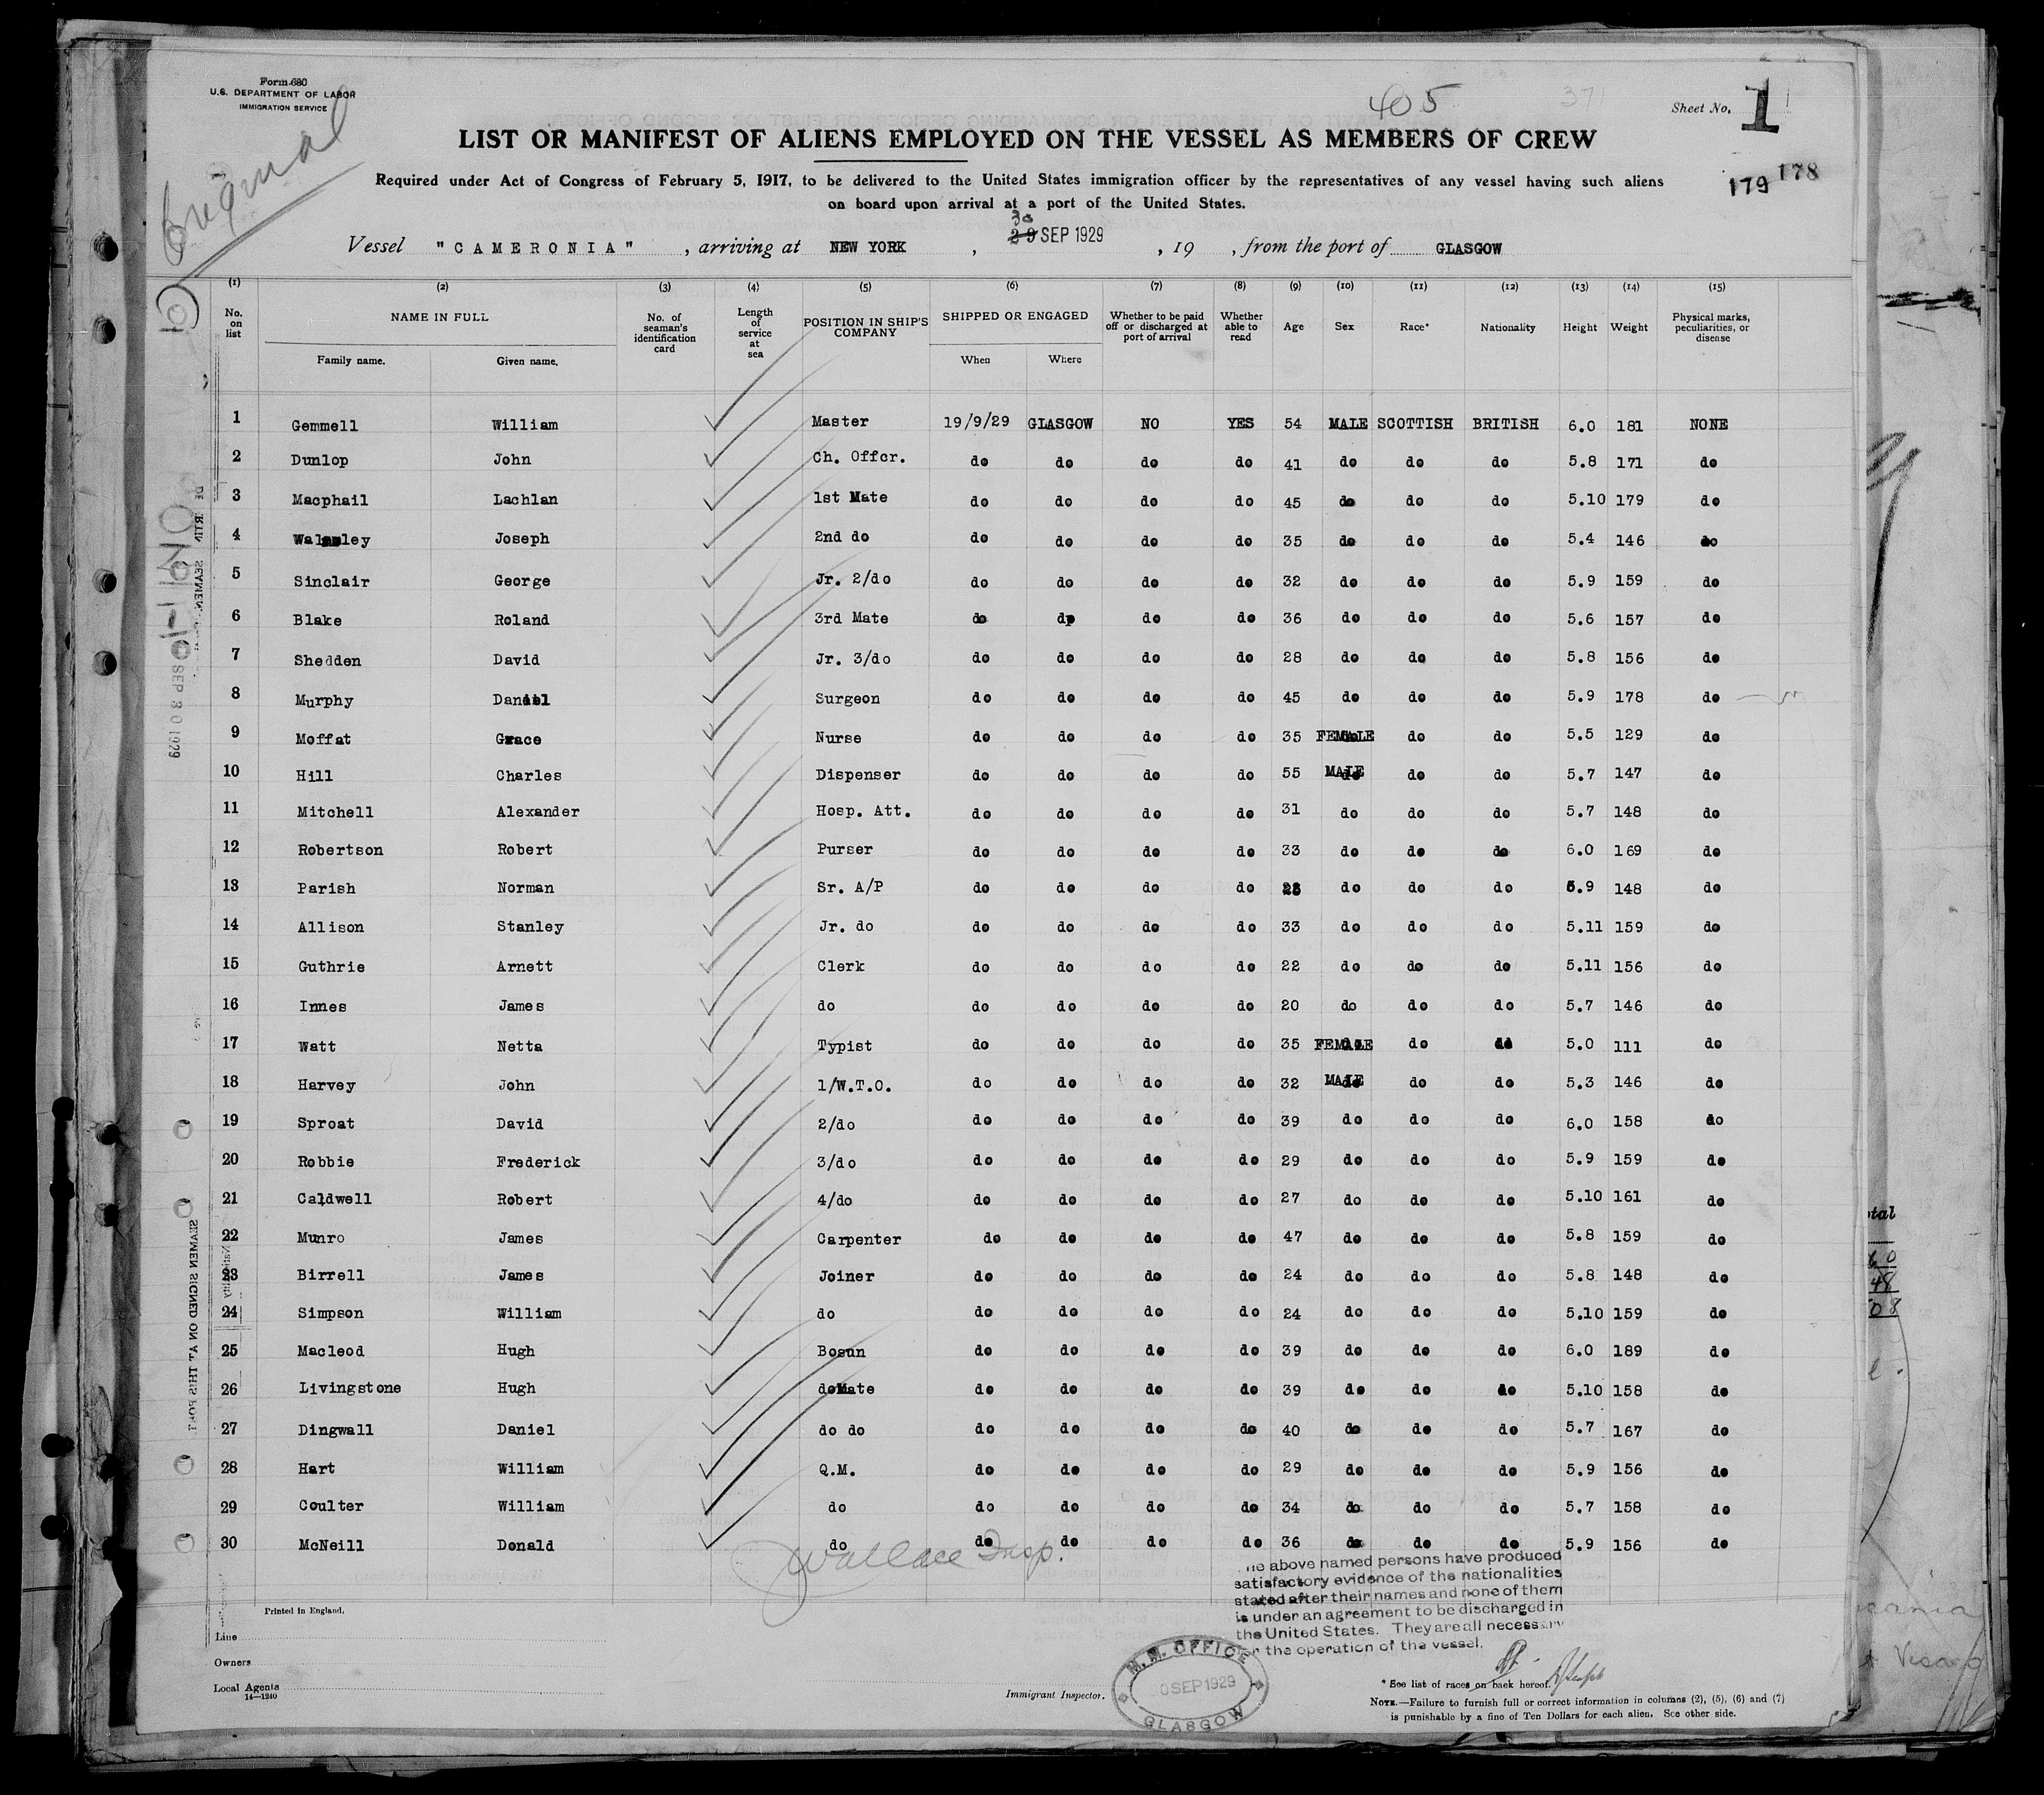 Form 680
U.S. DEPARTMENT OF LABOR
IMMIGRATION SERVICE
Original
405
371
Sheet No. 1
LIST OR MANIFEST OF ALIENS EMPLOYED ON THE VESSEL AS MEMBERS OF CREW
Required under Act of Congress of February 5, 1917, to be delivered to the United States immigration officer by the representatives of any vessel having such aliens
on board upon arrival at a port of the United States.
179 178
Vessel "CAMERONIA", arriving at NEW YORK, 29 30 SEP 1929, 19 , from the port of GLASGOW
(1) (2) (3) (4) (5) (6) (7) (8) (9) (10) (11) (12) (13) (14) (15)
No. on list NAME IN FULL Family name. Given name. No. of seaman's identification card Length of service at sea POSITION IN SHIP'S COMPANY SHIPPED OR ENGAGED When Where Whether to be paid off or discharged at port of arrival Whether able to read Age Sex Race* Nationality Height Weight Physical marks, peculiarities, or disease
1 Gemmell William Master 19/9/29 GLASGOW NO YES 54 MALE SCOTTISH BRITISH 6.0 181 NONE
2 Dunlop John Ch. Offcr. do do do do 41 do do do 5.8 171 do
3 Macphail Lachlan 1st Mate do do do do 45 do do do 5.10 179 do
4 Joseph 2nd do do do do do 35 do do do 5.4 146 do
5 Sinclair George Jr. 2/do do do do do 32 do do do 5.9 159 do
6 Blake Roland 3rd Mate do dp do do 36 do do do 5.6 157 do
7 Shedden David Jr. 3/do do do do do 28 do do do 5.8 156 do
8 Murphy Daniel Surgeon do do do do 45 do do do 5.9 178 do
9 Moffat Grace Nurse do do do do 35 FEMALE do do 5.5 129 do
10 Hill Charles Dispenser do do do do 55 MALE do do 5.7 147 do
11 Mitchell Alexander Hosp. Att. do do do do 31 do do do 5.7 148 do
12 Robertson Robert Purser do do do do 33 do do do 6.0 169 do
13 Parish Norman Sr. A/P do do do do do do do 5.9 148 do
14 Allison Stanley Jr. do do do do do 33 do do do 5.11 159 do
15 Guthrie Arnett Clerk do do do do 22 do do do 5.11 156 do
16 Innes James do do do do do 20 do do do 5.7 146 do
17 Watt Netta Typist do do do do 35 FEMALE do do 5.0 111 do
18 Harvey John 1/W.T.O. do do do do 32 MALE do do 5.3 146 do
19 Sproat David 2/do do do do do 39 do do do 6.0 158 do
20 Robbie Frederick 3/do do do do do 29 do do do 5.9 159 do
21 Caldwell Robert 4/do do do do do 27 do do do 5.10 161 do
22 Munro James Carpenter do do do do 47 do do do 5.8 159 do
23 Birrell James Joiner do do do do 24 do do do 5.8 148 do
24 Simpson William do do do do do 24 do do do 5.10 159 do
25 Macleod Hugh Bosun do do do do 39 do do do 6.0 189 do
26 Livingstone Hugh doMate do do do do 39 do do do 5.10 158 do
27 Dingwall Daniel do do do do do do 40 do do do 5.7 167 do
28 Hart William Q.M. do do do do 29 do do do 5.9 156 do
29 Coulter William do do do do do 34 do do do 5.7 158 do
30 McNeill Donald do do do do do 36 do do do 5.9 156 do
Wallace Insp.
above named persons have produced
satisfactory evidence of the nationalities
stated after their names and none of them
is under an agreement to be discharged in
the United States. They are all necessary
the operation of the vessel.
Printed in England.
Line
Owners
Local Agents
14—1240
Immigrant Inspector.
M.M. OFFICE
SEP 1929
GLASGOW
* See list of races on back hereof.
NOTE.—Failure to furnish full or correct information in columns (2), (5), (6) and (7)
is punishable by a fine of Ten Dollars for each alien. See other side.
SEP 30 1929
SEAMEN SIGNED ON AT THIS PORT